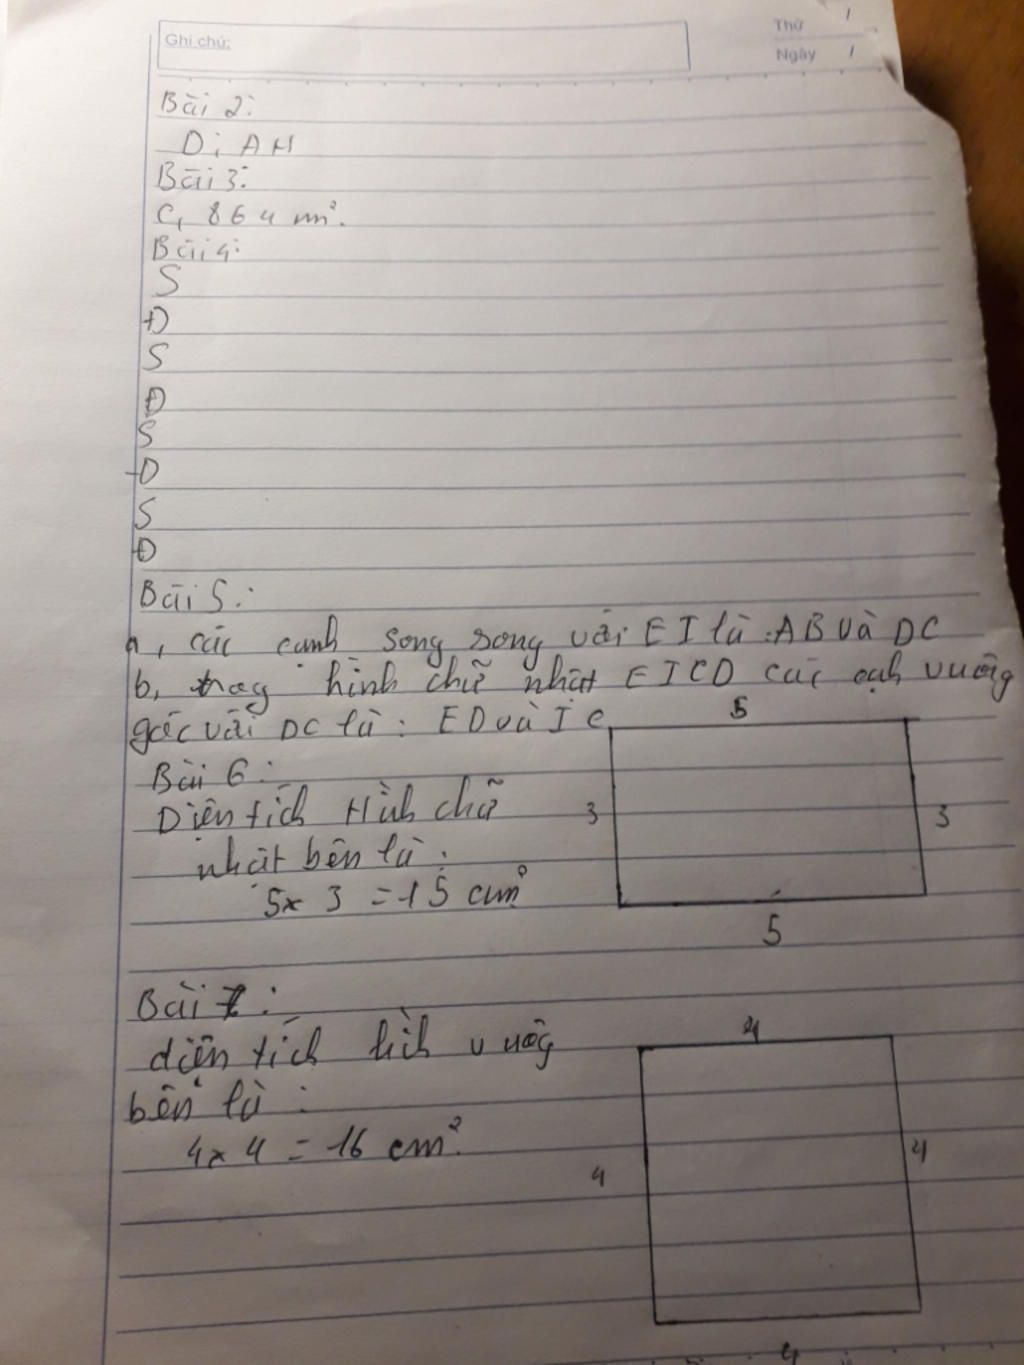 Ghi chú:
Thứ
Ngày
Bài 2:
D; AH
Bài 3:
C, 864 m².
Bài 4:
S
Đ
S
Đ
S
Đ
S
Đ
Bài 5:
a, các cạnh song song với EI là: AB và DC
b, hình chữ nhật EICD các cạnh vuông
góc với DC là: ED và IC
5
Bài 6:
Diện tích Hình chữ
3
3
nhật bên là:
5 x 3 = 15 cm²
5
Bài 7:
4
diện tích hình vuông
bên là:
4 x 4 = 16 cm².
4
4
4